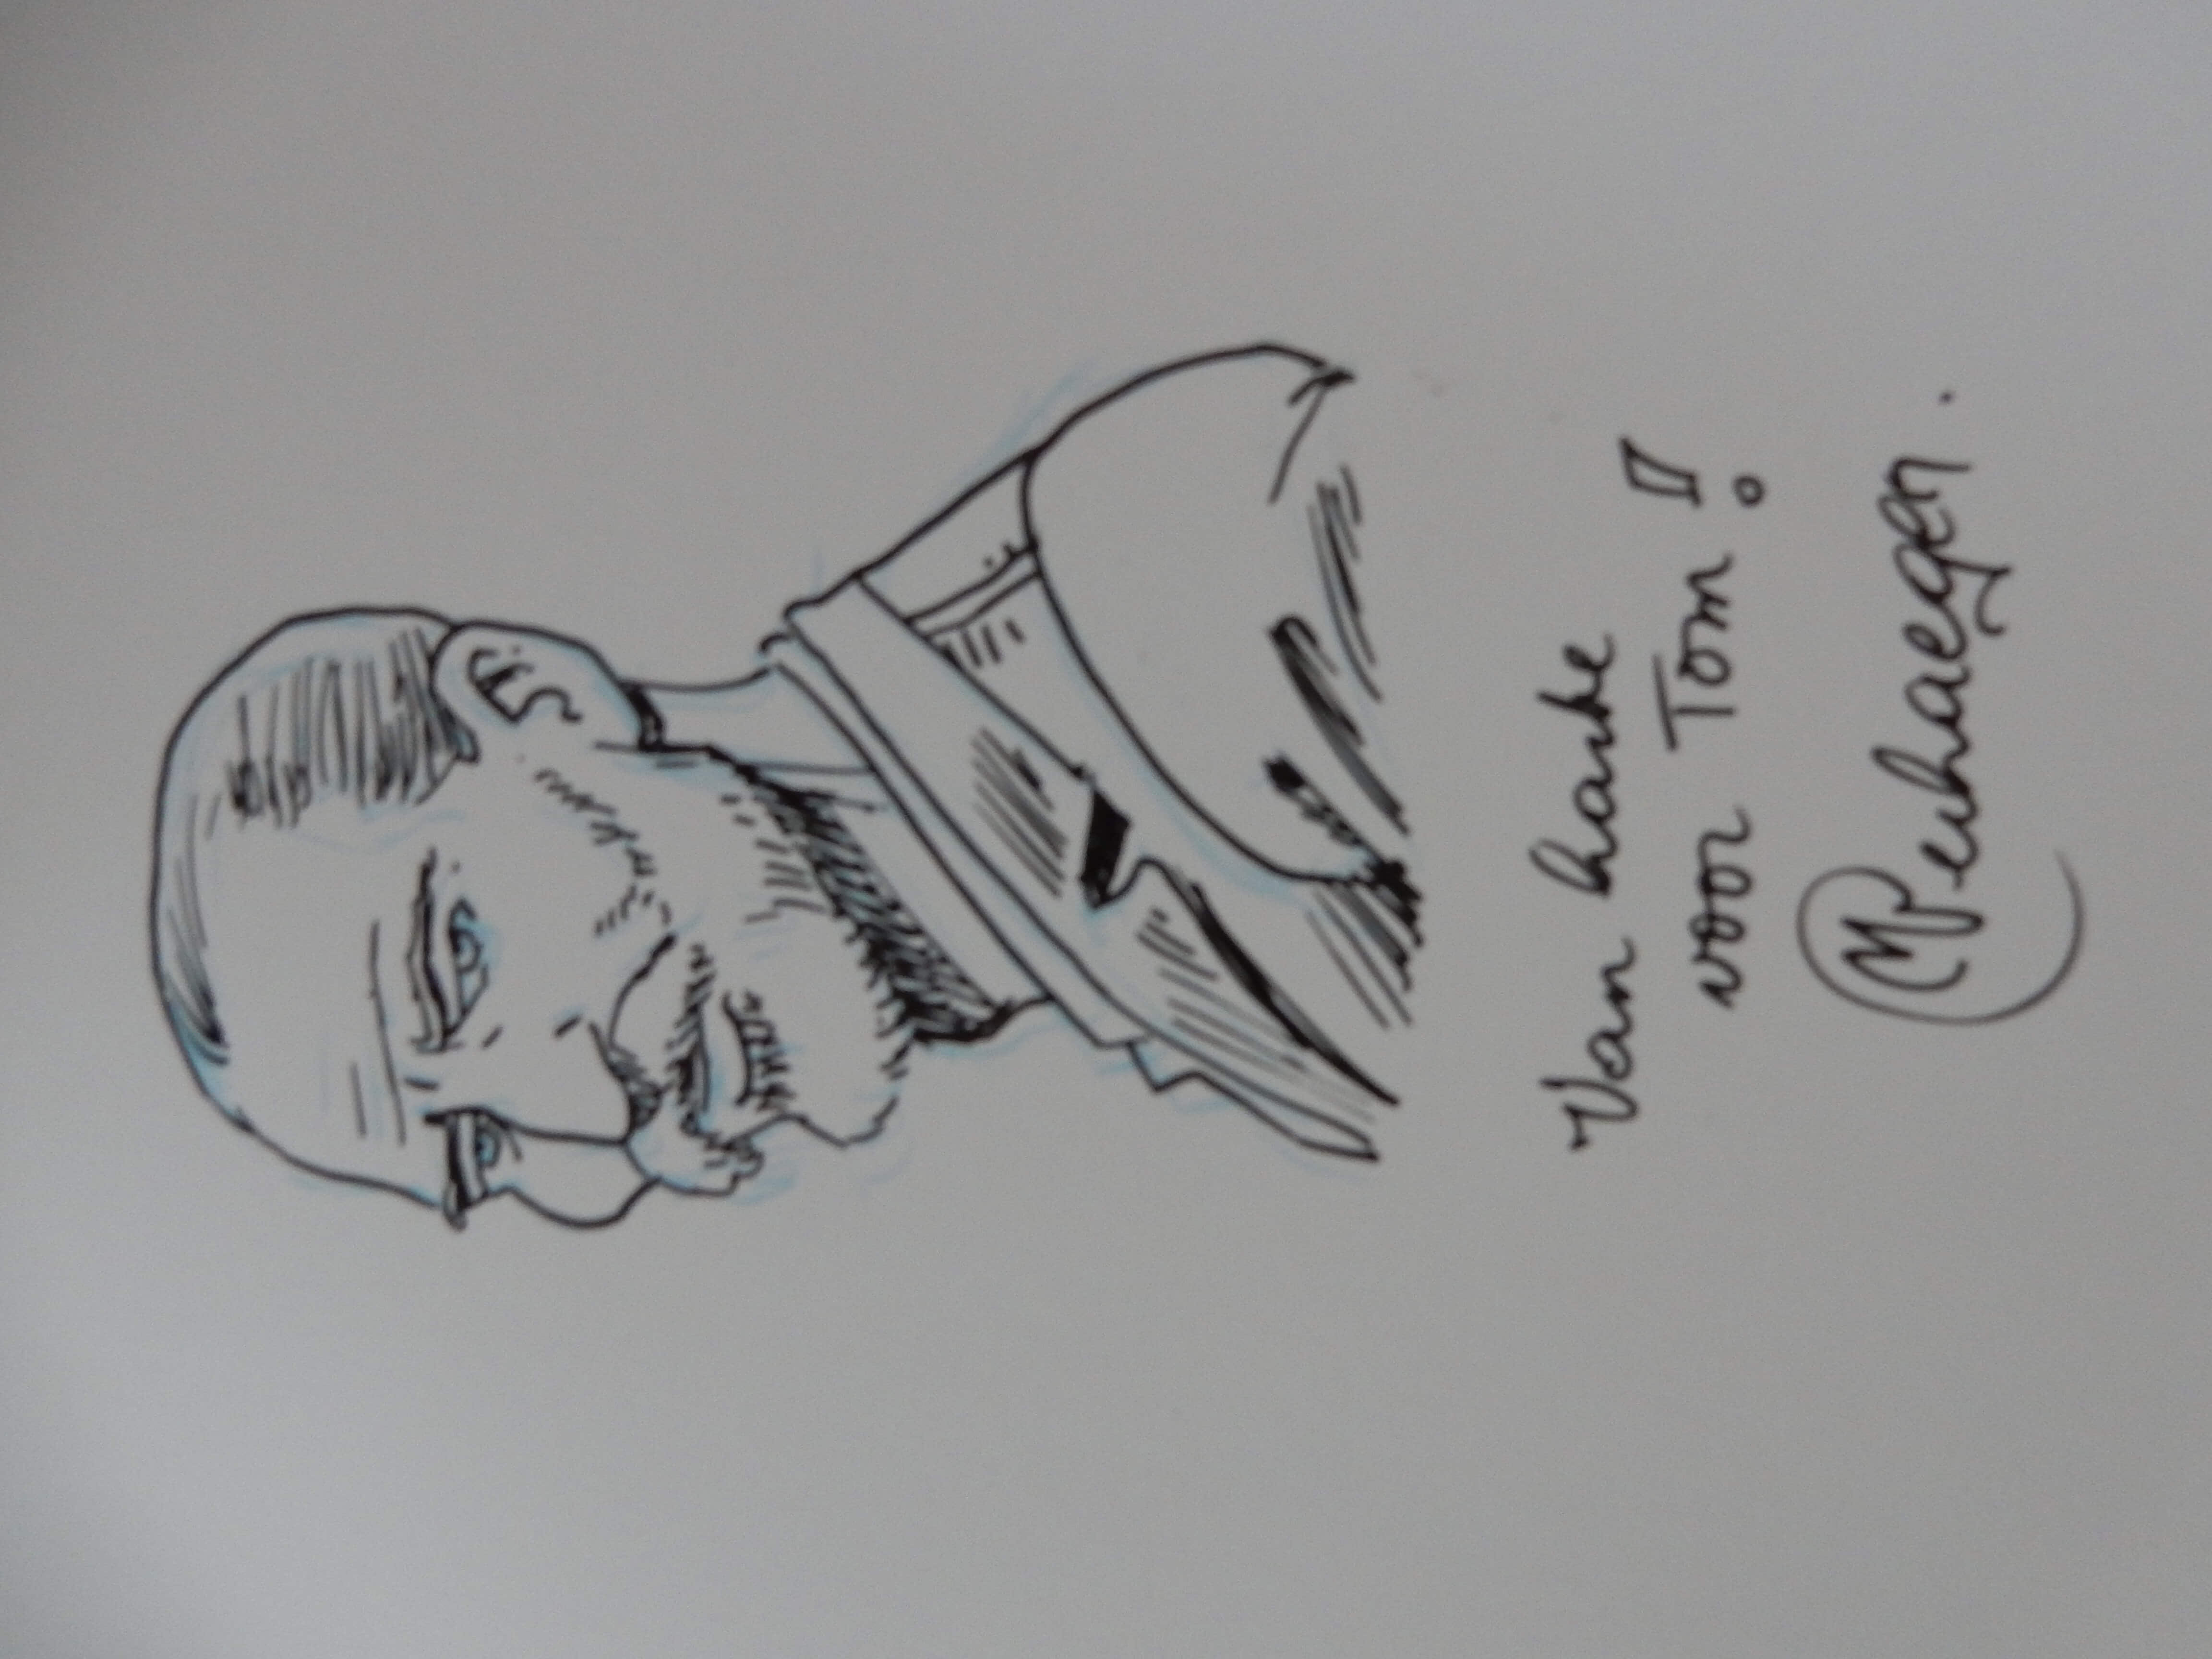 Van harte
voor Tom!
MVerhaegen.